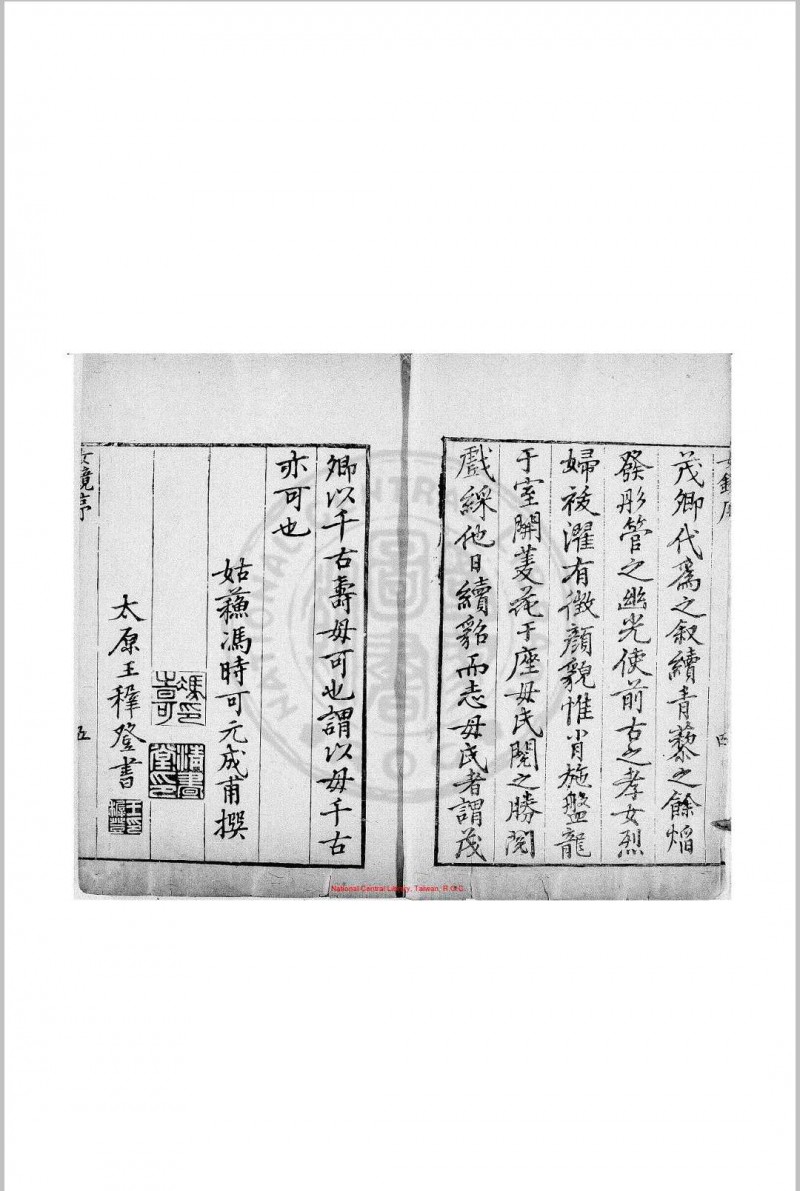 茂卿代爲之叙續青藜之餘焰
發彤管之幽光使前古之孝女烈
婦祓濯有徵顏貌惟肖施盤龍
于室開菱花于座母氏閱之勝閱
戲綵他日續貂而志母氏者謂茂
卿以千古壽母可也謂以母千古
亦可也
姑蘇馮時可元成甫撰
太原王穉登書
女鏡序
四
女鏡序
五
王穉登
National Central Library, Taiwan, R.O.C.